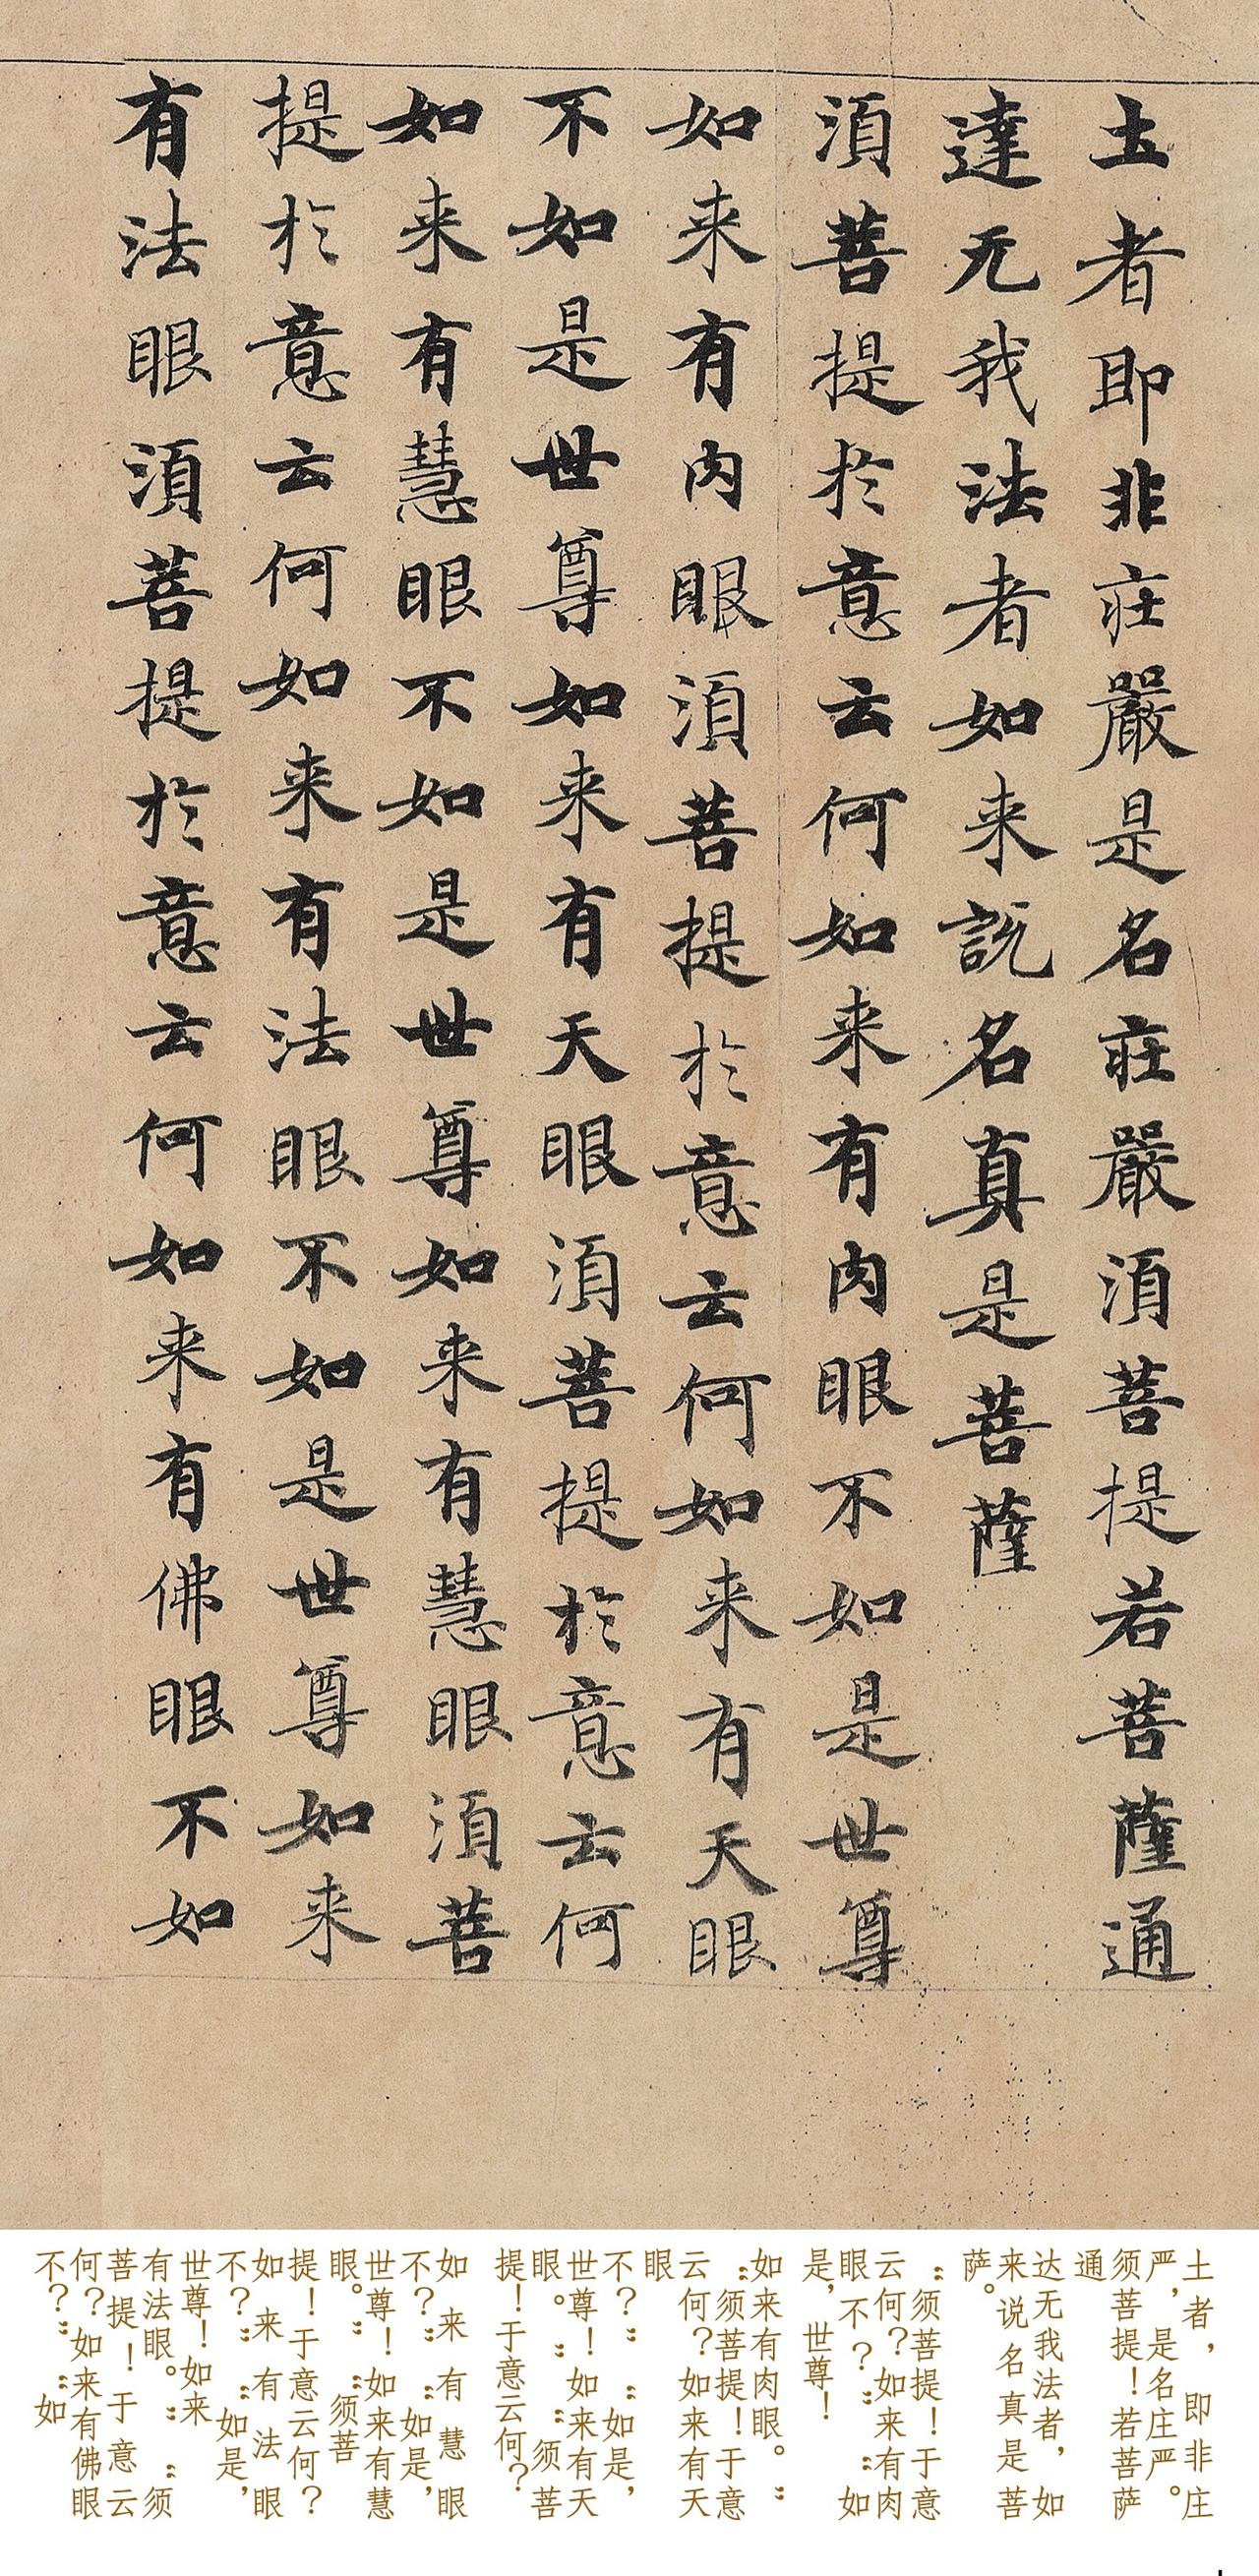 土者即非莊嚴是名莊嚴須菩提若菩薩通
達无我法者如来說名真是菩薩
須菩提於意云何如来有肉眼不如是世尊
如来有肉眼須菩提於意云何如来有天眼
不如是世尊如来有天眼須菩提於意云何
如来有慧眼不如是世尊如来有慧眼須菩
提於意云何如来有法眼不如是世尊如来
有法眼須菩提於意云何如来有佛眼不如
土者，即非庄
严，是名庄严。
须菩提！若菩萨
通
达无我法者，如
来说名真是菩
萨。
“须菩提！于意
云何？如来有肉
眼不？”“如
是，世尊！
如来有肉眼。”
“须菩提！于意
云何？如来有天
眼
不？”“如是，
世尊！如来有天
眼。”“须菩
提！于意云何？
如来有慧眼
不？”“如是，
世尊！如来有慧
眼。”“须菩
提！于意云何？
如来有法眼
不？”“如是，
世尊！如来
有法眼。”“须
菩提！于意云
何？如来有佛眼
不？”“如